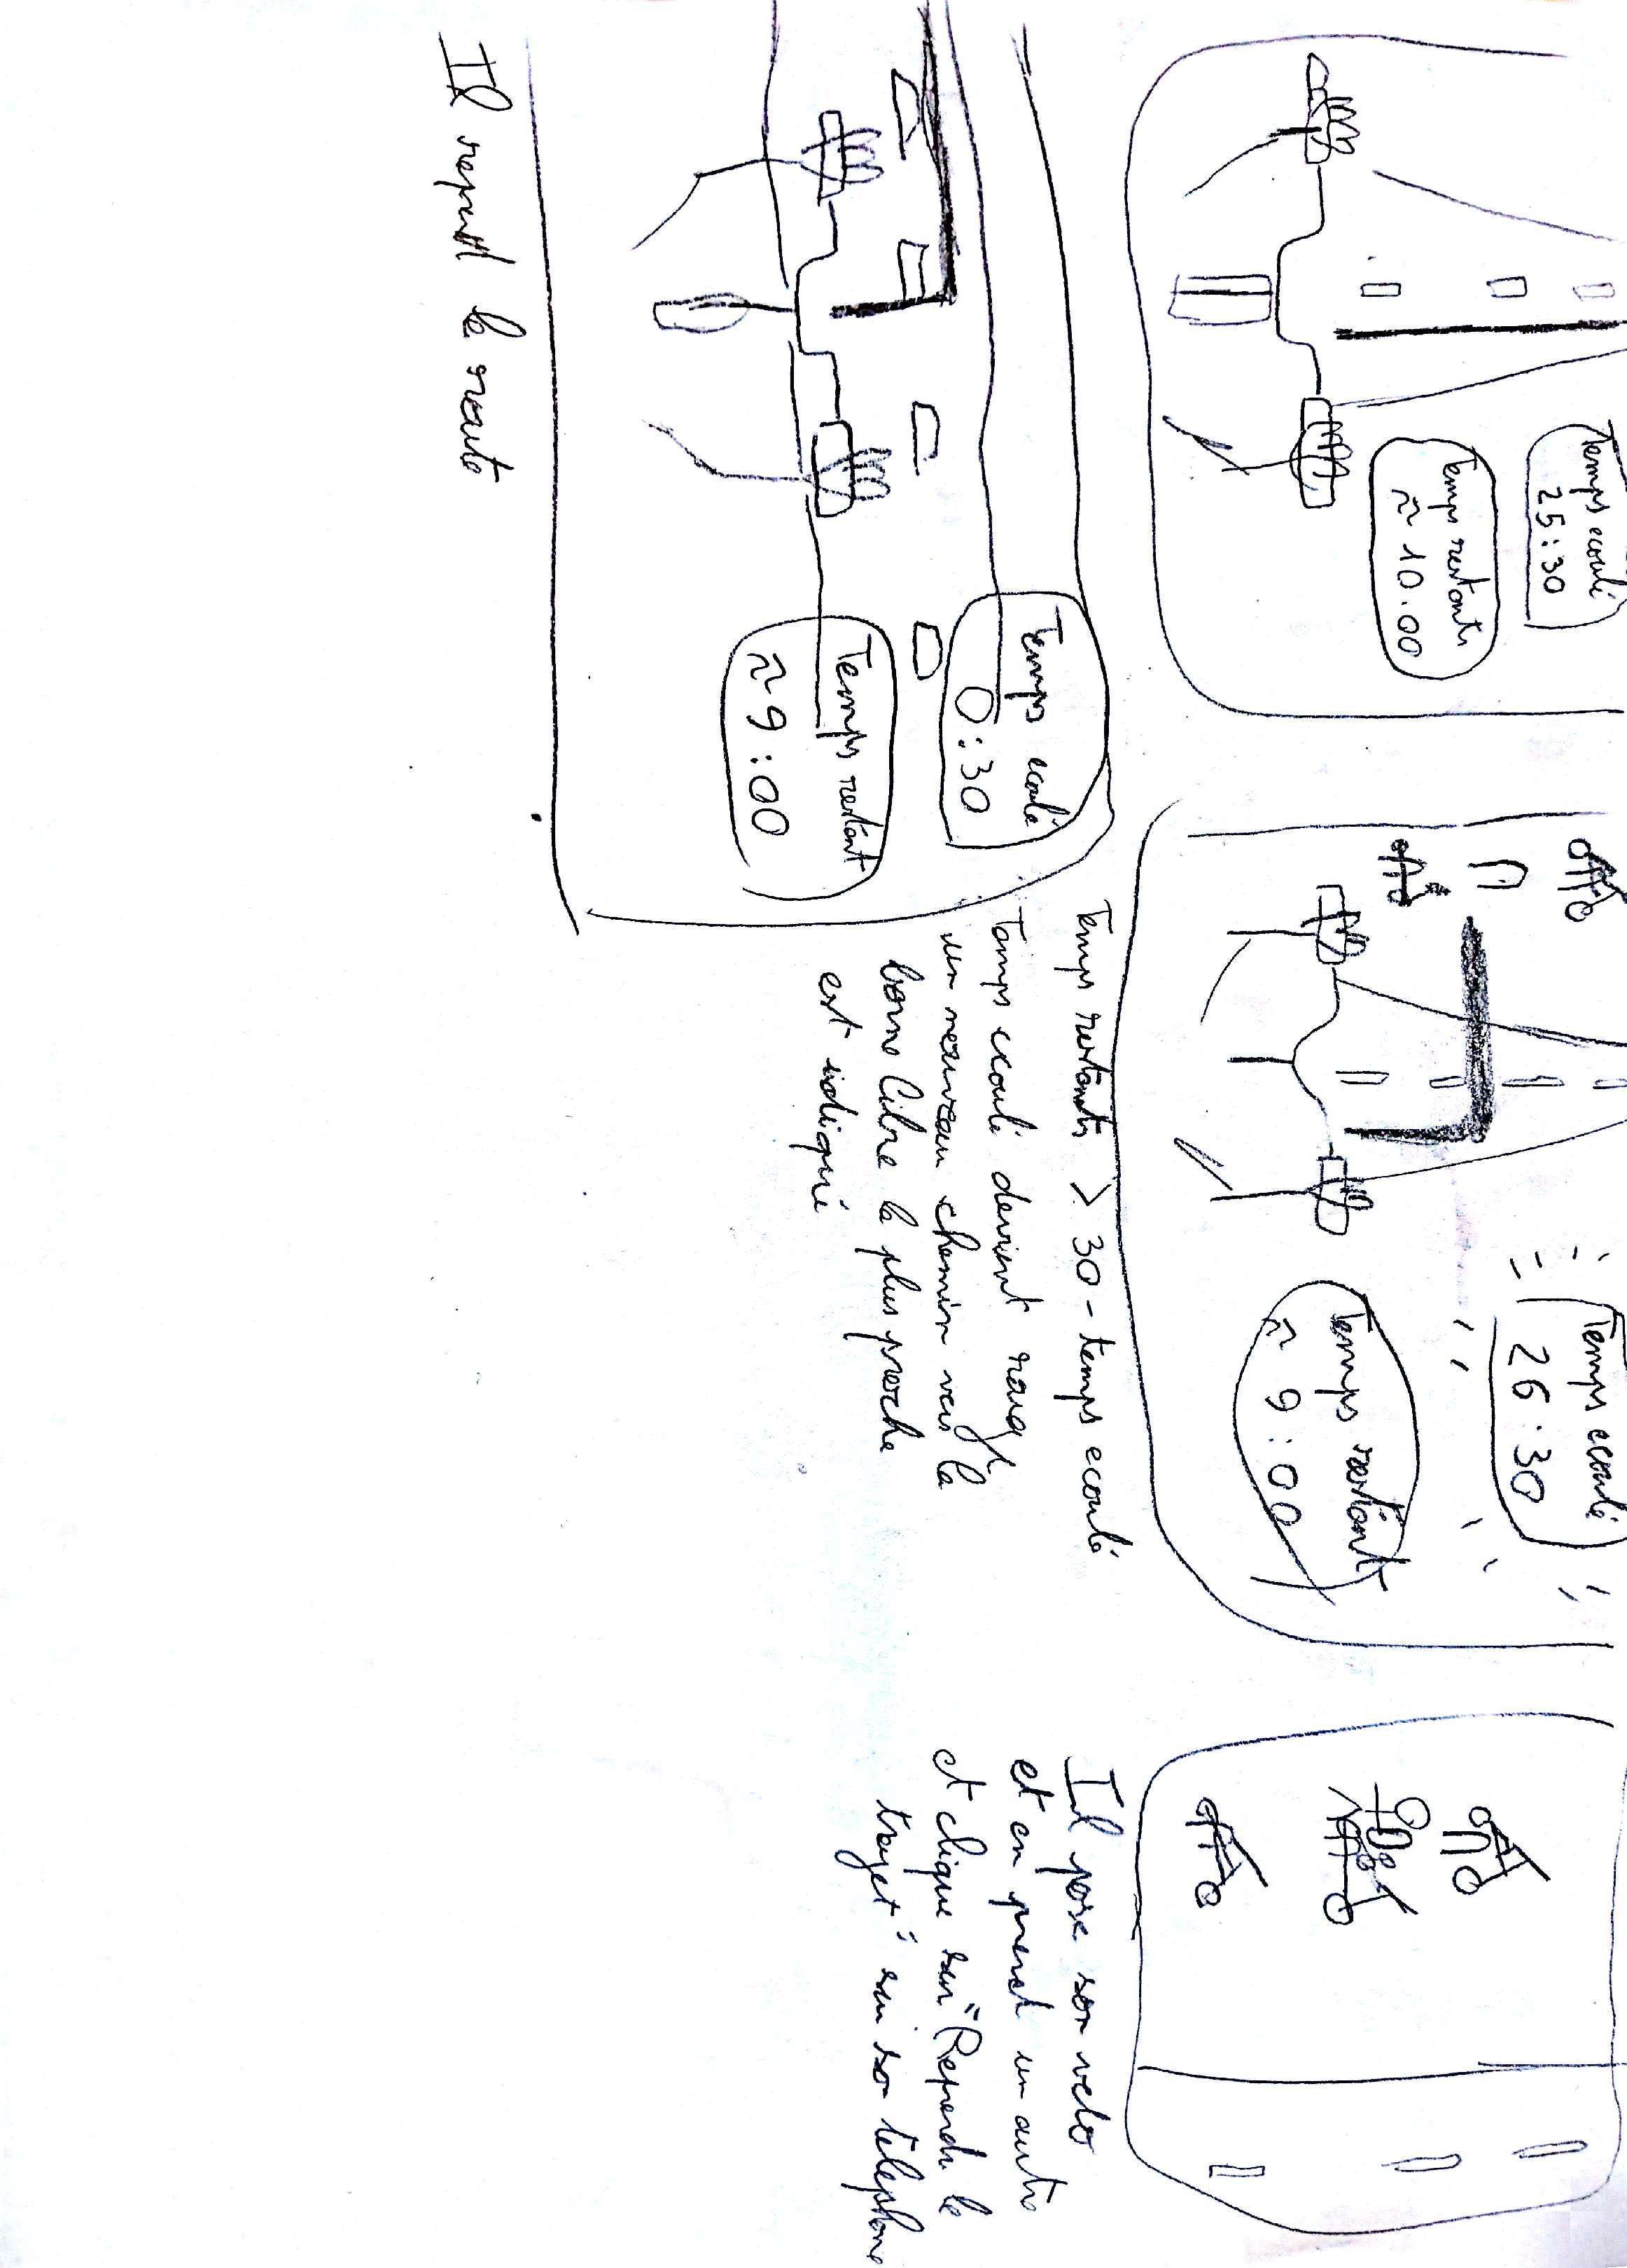 Temps ecoulé
25:30
Temps restants
≈ 10.00
Temps ecoulé
26:30
Temps restant
≈ 9:00
Temps restants > 30 - temps ecoulé
Temps ecoulé devient rouge
un nouveau chemin vers la
borne libre la plus proche
est indiqué
Il pose son velo
et en prend un autre
et clique sur "Reprendre le
trajet" sur son telephone
Temps ecoulé
0:30
Temps restant
≈ 9:00
Il reprend la route